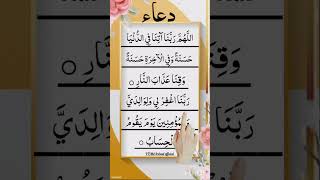 دعاء
اللّٰهُمَّ رَبَّنَا آتِنَا فِي الدُّنْيَا
حَسَنَةً وَفِي الْآخِرَةِ حَسَنَةً
وَقِنَا عَذَابَ النَّارِ ○
رَبَّنَا اغْفِرْ لِي وَلِوَالِدَيَّ
وَلِلْمُؤْمِنِينَ يَوْمَ يَقُومُ
الْحِسَابُ ○